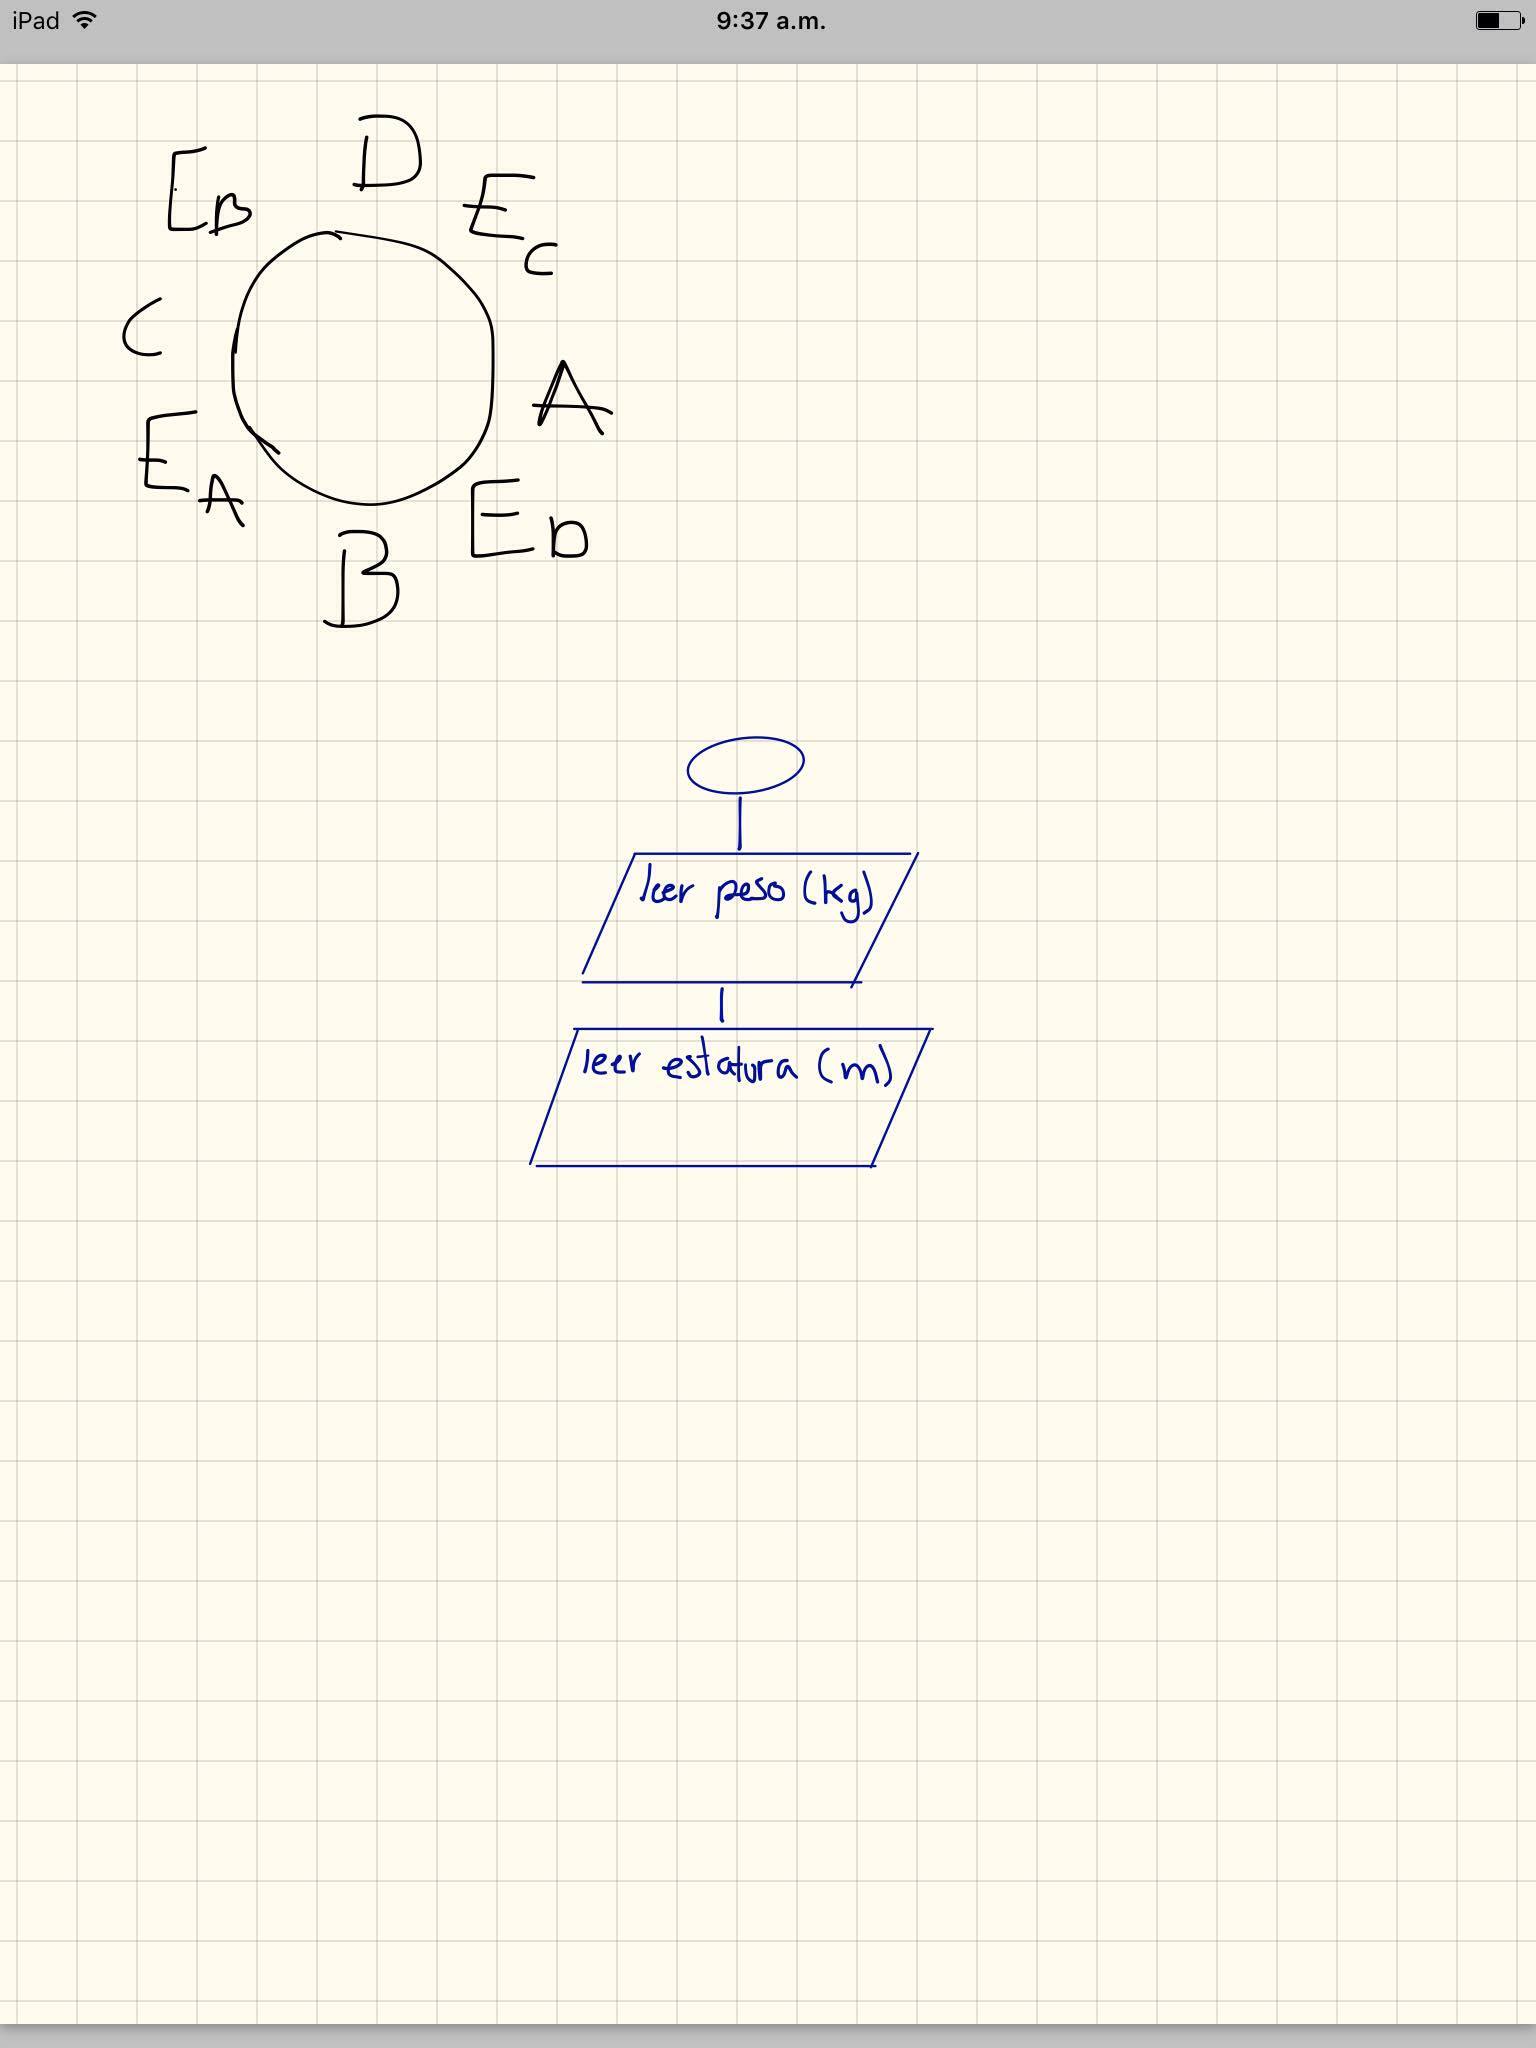 iPad 9:37 a.m.
D
EB
EC
C
A
EA
ED
B
leer peso (kg)
leer estatura (m)